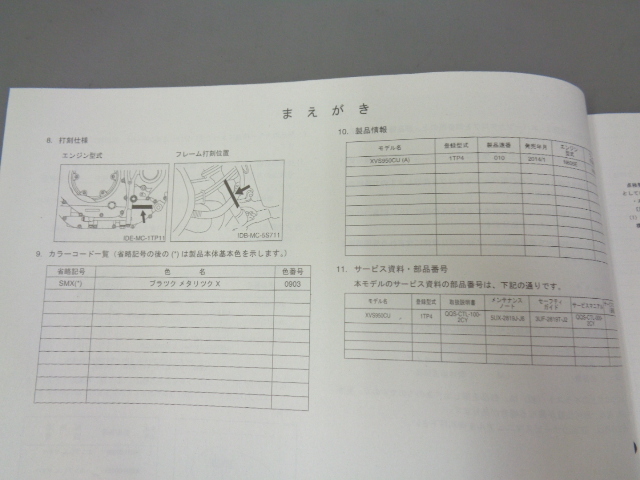 まえがき
8. 打刻仕様
エンジン型式
フレーム打刻位置
IDE-MC-1TP11
IDB-MC-5S711
9. カラーコード一覧（省略記号の後の (*) は製品本体基本色を示します。）
省略記号 色 名 色番号
SMX(*) ブラツク メタリツク X 0903
10. 製品情報
モデル名 登録型式 製品連番 発売年月 エンジン型式
XVS950CU (A) 1TP4 010 2014/1
11. サービス資料・部品番号
本モデルのサービス資料の部品番号は、下記の通りです。
モデル名 登録型式 取扱説明書 メンテナンスノート セーフティガイド サービスマニュアル
XVS950CU 1TP4 QQS-CLT-100-2CY